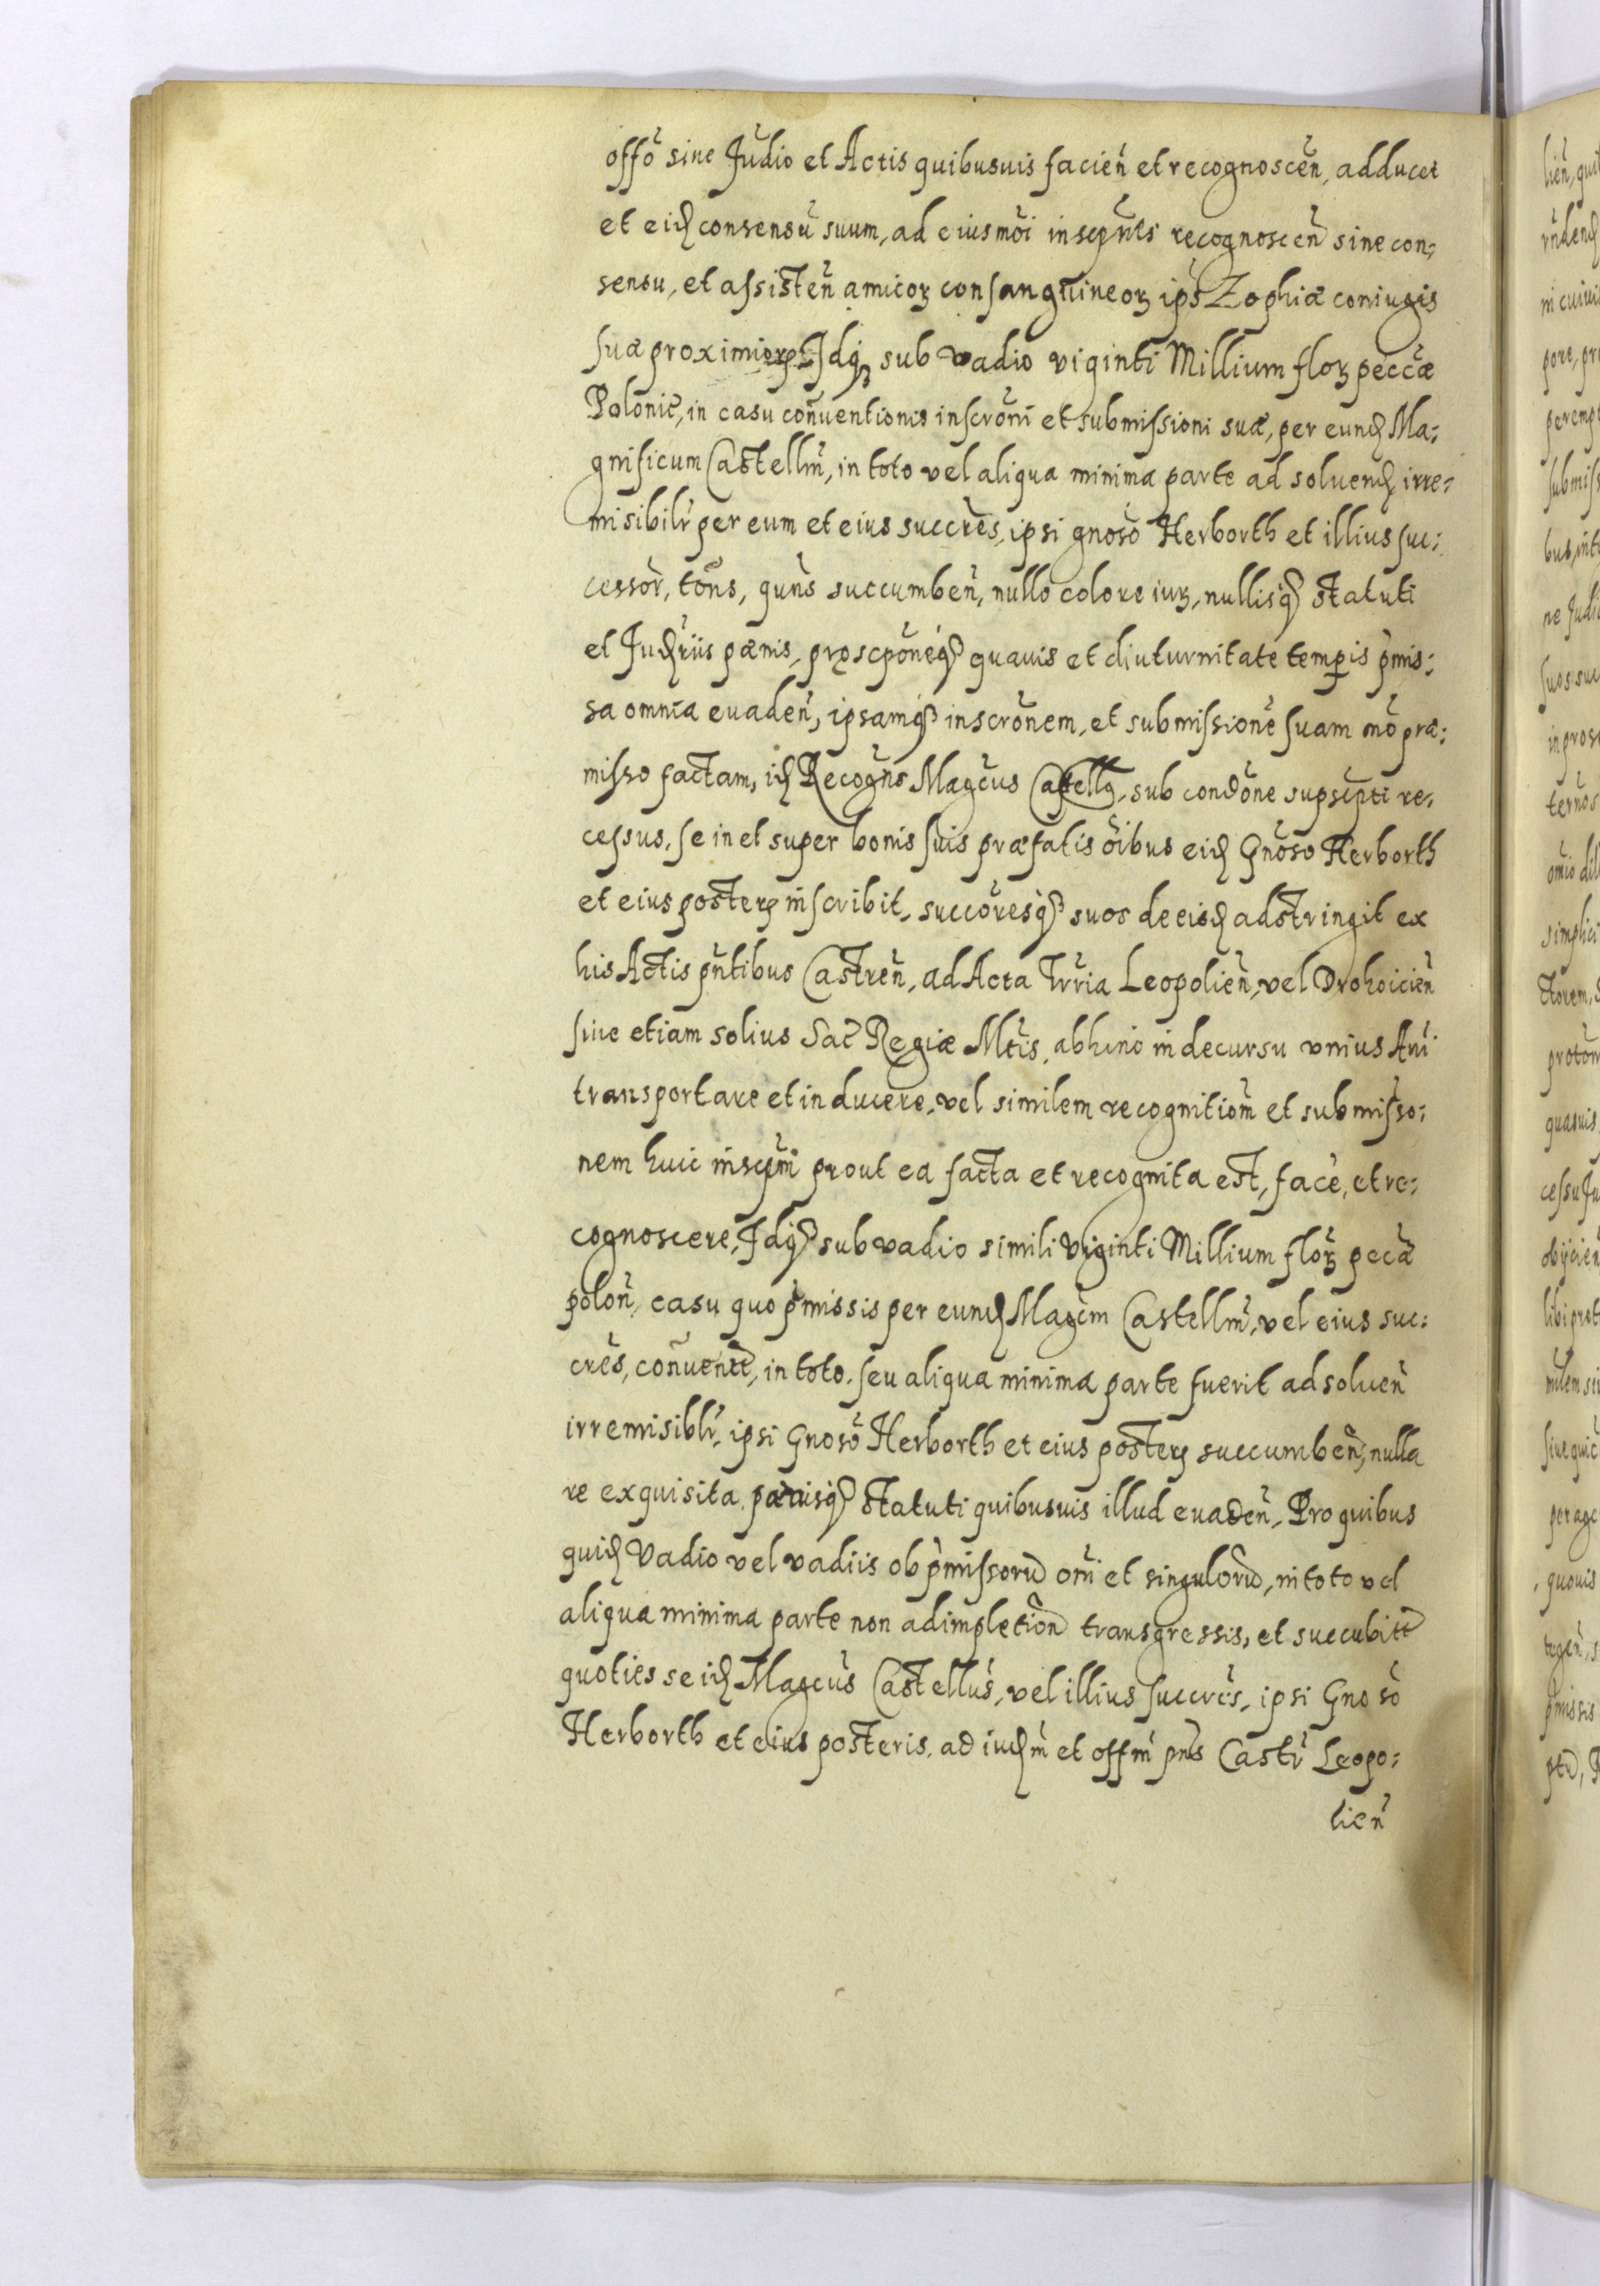 offō sine Judio et Actis quibusuis facien̄ et recognoscen̄, adducet
et eid consensū suum, ad eiusmōi inscrip̄ntis recognoscen̄ sine con:
sensu, et assisten̄ amicoꝝ consanguineoꝝ ips̄ Zophiæ coniugis
suæ proximioꝝ Idꝙ sub vadio viginti Millium floꝝ peccæ
Polonic̄, in casu conuentionis inscrōni et submissioni suæ, per eund Ma:
gnificum Castellm̄, in toto vel aliqua minima parte ad soluend irre:
misibilr̄ per eum et eius succres̄, ipsi gnoso Herborth et illius suc:
cessor̄, tōns, quns̄ succumben̄, nullo colore iuꝝ, nullisqꝫ statuti
et Judriis pænis, proscpōneqꝫ quauis et diuturnitate temp̄is p̄mis:
sa omnia euaden̄, ipsamqꝫ inscrōnem, et submissionē suam mō præ:
misso factam, id Recogn̄s Magc̄us Castellꝰ, sub condōne supscpti re:
cessus, se in et super bonis suis præfatis ōibus eid Gnōso Herborth
et eius posteris inscribit, succōresqꝫ suos de eisd adstringit ex
his Actis pn̄tibus Castren̄, ad Acta Trr̄ia Leopolien̄, vel Drohoicien̄
siue etiam solius Sac̄ Regiæ Mtis̄, abhinc in decursu vnius Ani
transportare et inducere, vel similem recognitiom̄ et submisso:
nem huic inscp̄ni prout ea facta et recognita est, facē, et re:
cognoscere, Idqꝫ sub vadio simili Viginti Millium floꝝ pecæ
polon̄, casu quo p̄missis per eund Magc̄m Castellm̄, vel eius suc:
cres̄, conuentt, in toto, seu aliqua minima parte fuerit ad soluen̄
irremisiblr̄, ipsi Gnosō Herborth et eius posteris succumben̄, nulla
re exquisita, pænisqꝫ statuti quibusuis illud euaden̄, Pro quibus
quid Vadio vel vadiis ob p̄missorū om̄i et singulorū, in toto vel
aliqua minima parte non adimpletion̄ transgressis, et succubitt
quoties se id Magc̄us Castellus̄, vel illius succrēs, ipsi Gnosō
Herborth et eius posteris, ad iudm̄ et offm̄ pn̄s Castr̄ Leopo:
lien̄